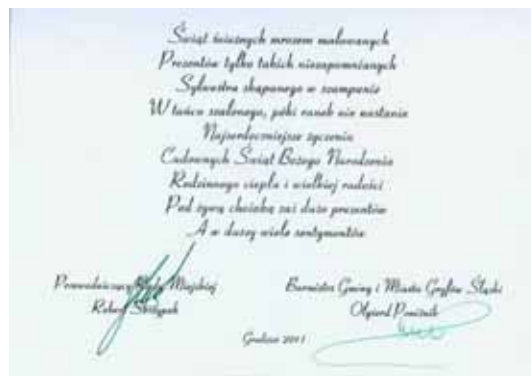 Świąt śnieżnych mrozem malowanych
Prezentów tylko takich niezapomnianych
Sylwestra skąpanego w szampanie
W tańcu szalonego, póki ranek nie nastanie
Najserdeczniejsze życzenia
Cudownych Świąt Bożego Narodzenia
Rodzinnego ciepła i wielkiej radości
Pod żywą choinką zaś dużo prezentów
A w duszy wiele sentymentów
Przewodniczący Rady Miejskiej
Robert Skrzypek
Burmistrz Gminy i Miasta Gryfów Śląski
Olgierd Poniźnik
Grudzień 2011